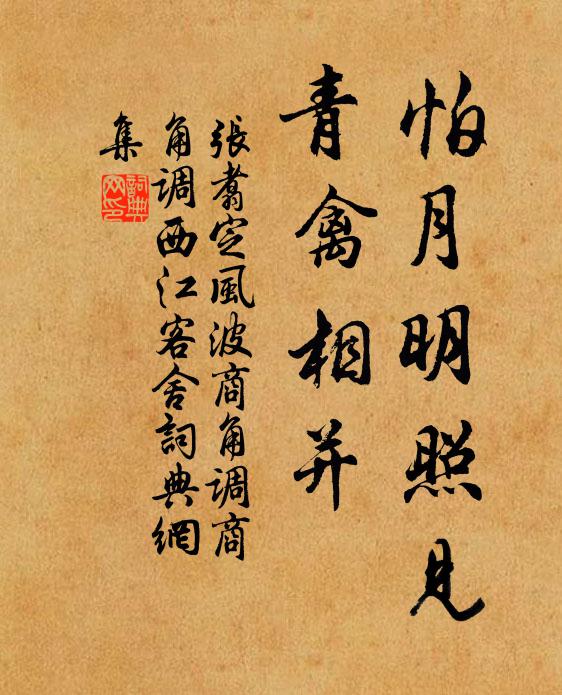 怕月明照見
青禽相并
張翥定風波商角調商
角調西江客舍詞典網
集
詞典
网印